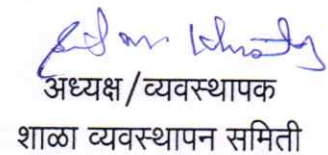 अध्यक्ष/व्यवस्थापक
शाळा व्यवस्थापन समिती